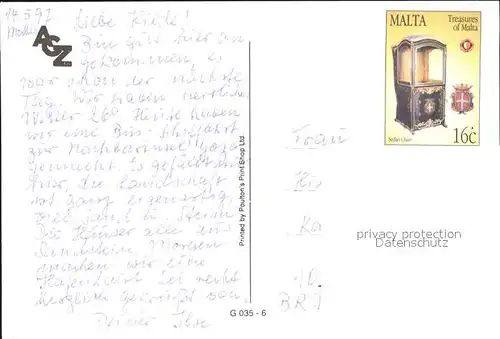 14.5.97
Liebe
AGZ
Bin gut hier an
gekommen, es
war schon der nächste
Tag. Wir haben herrliches
Wetter 26° Heute haben
wir eine Bus-Schiffahrt
zur Nachbarinsel Gozo
gemacht. Es gefällt mir
hier, die Landschaft
ist ganz eigenartig,
viel Sand u. Steine
Die Häuser alle aus
Sandstein. Morgen
machen wir eine
Hafenfahrt. Sei recht
herzlich gegrüßt von
Deiner Ilse
Printed by Poulton's Print Shop Ltd
G 035 - 6
MALTA
Treasures
of Malta
Sedan Chair
16c
Frau
Ka
privacy protection
Datenschutz